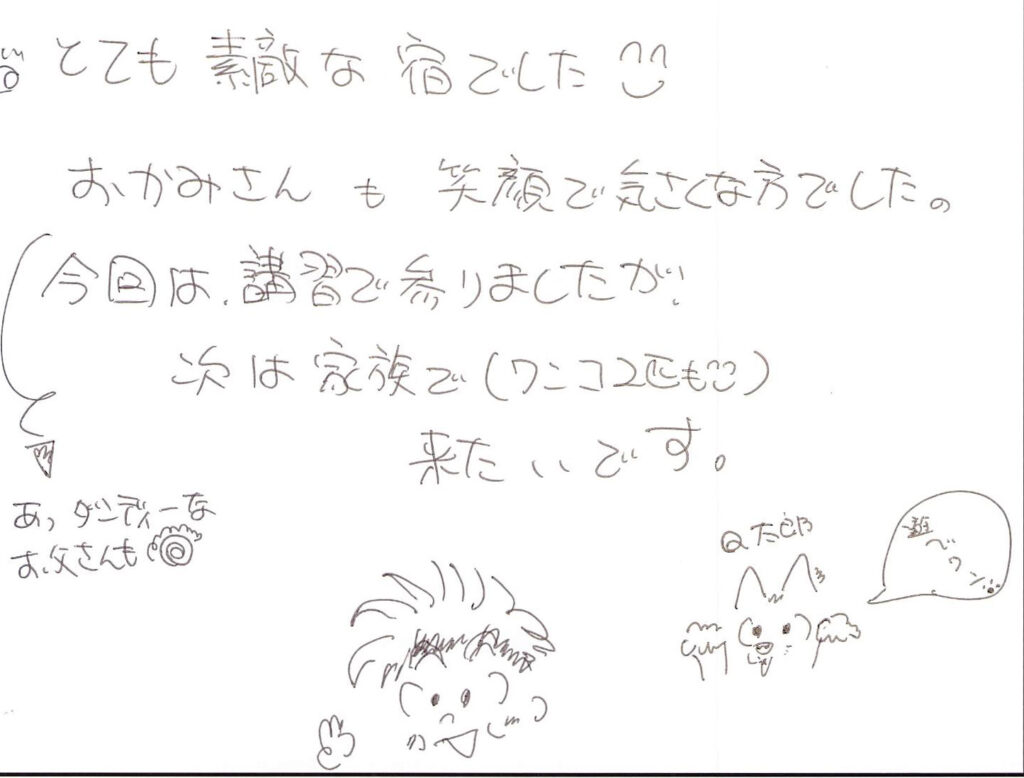 とても 素敵な 宿でした
おかみさん も 笑顔で気さくな方でした。
今回は、講習で参りましたが!
次は家族で(ワンコ2匹も)
来たいです。
あっ ダンディーな
お父さんも
Q太郎
ワン